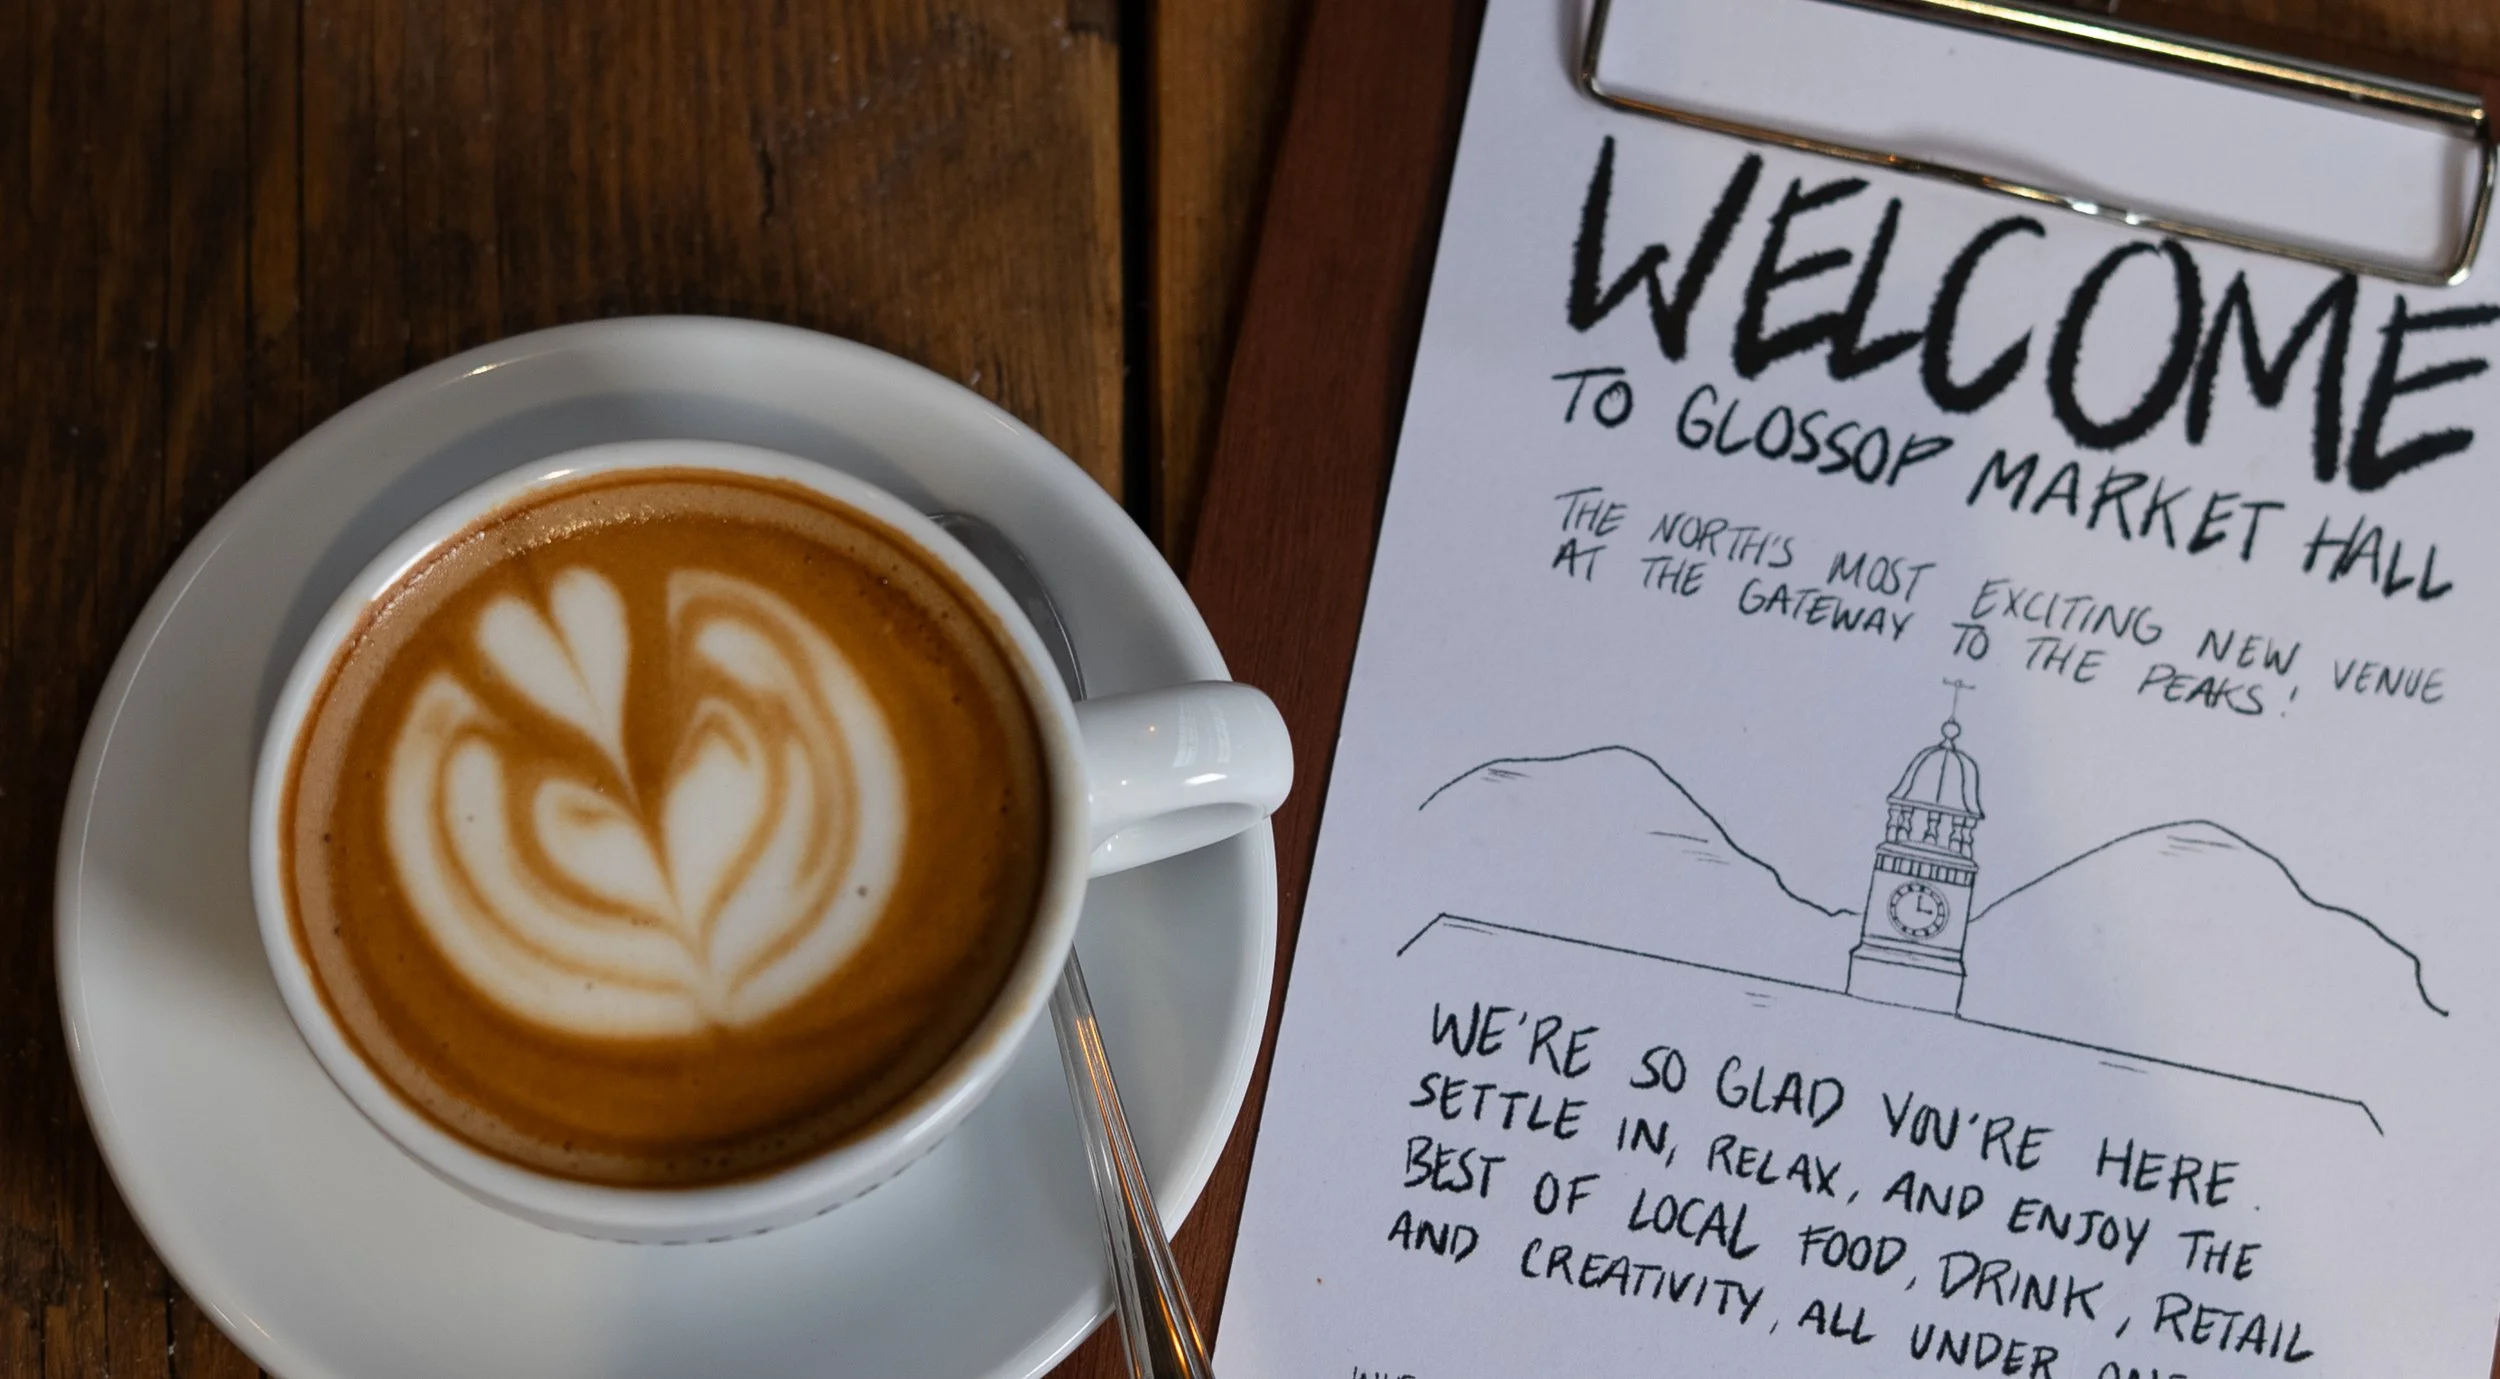 WELCOME
TO GLOSSOP MARKET HALL
THE NORTH'S MOST EXCITING NEW VENUE
AT THE GATEWAY TO THE PEAKS!
WE'RE SO GLAD YOU'RE HERE.
SETTLE IN, RELAX, AND ENJOY THE
BEST OF LOCAL FOOD, DRINK, RETAIL
AND CREATIVITY, ALL UNDER